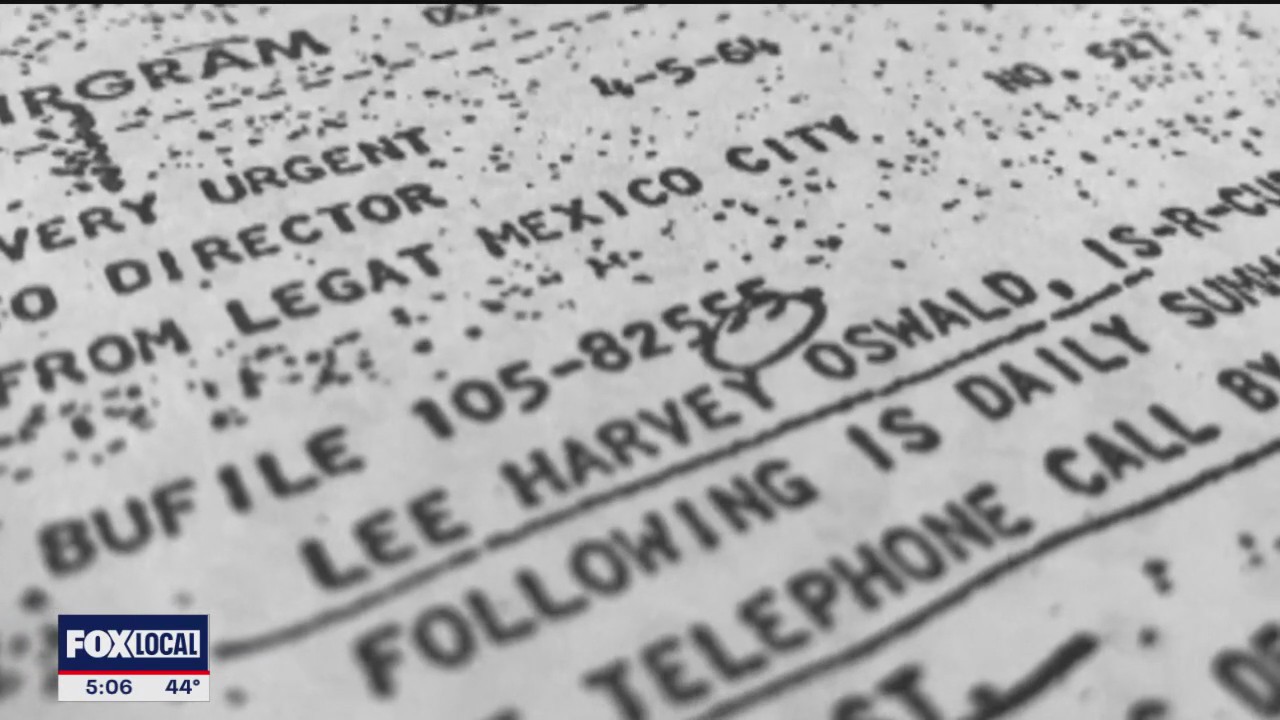 IRGRAM
4-5-64
NO. 527
VERY URGENT
TO DIRECTOR
FROM LEGAT MEXICO CITY
BUFILE 105-82555.
LEE HARVEY OSWALD, IS-R-CU
FOLLOWING IS DAILY SUMM
TELEPHONE CALL BY
ST.
FOX LOCAL
5:06 44°